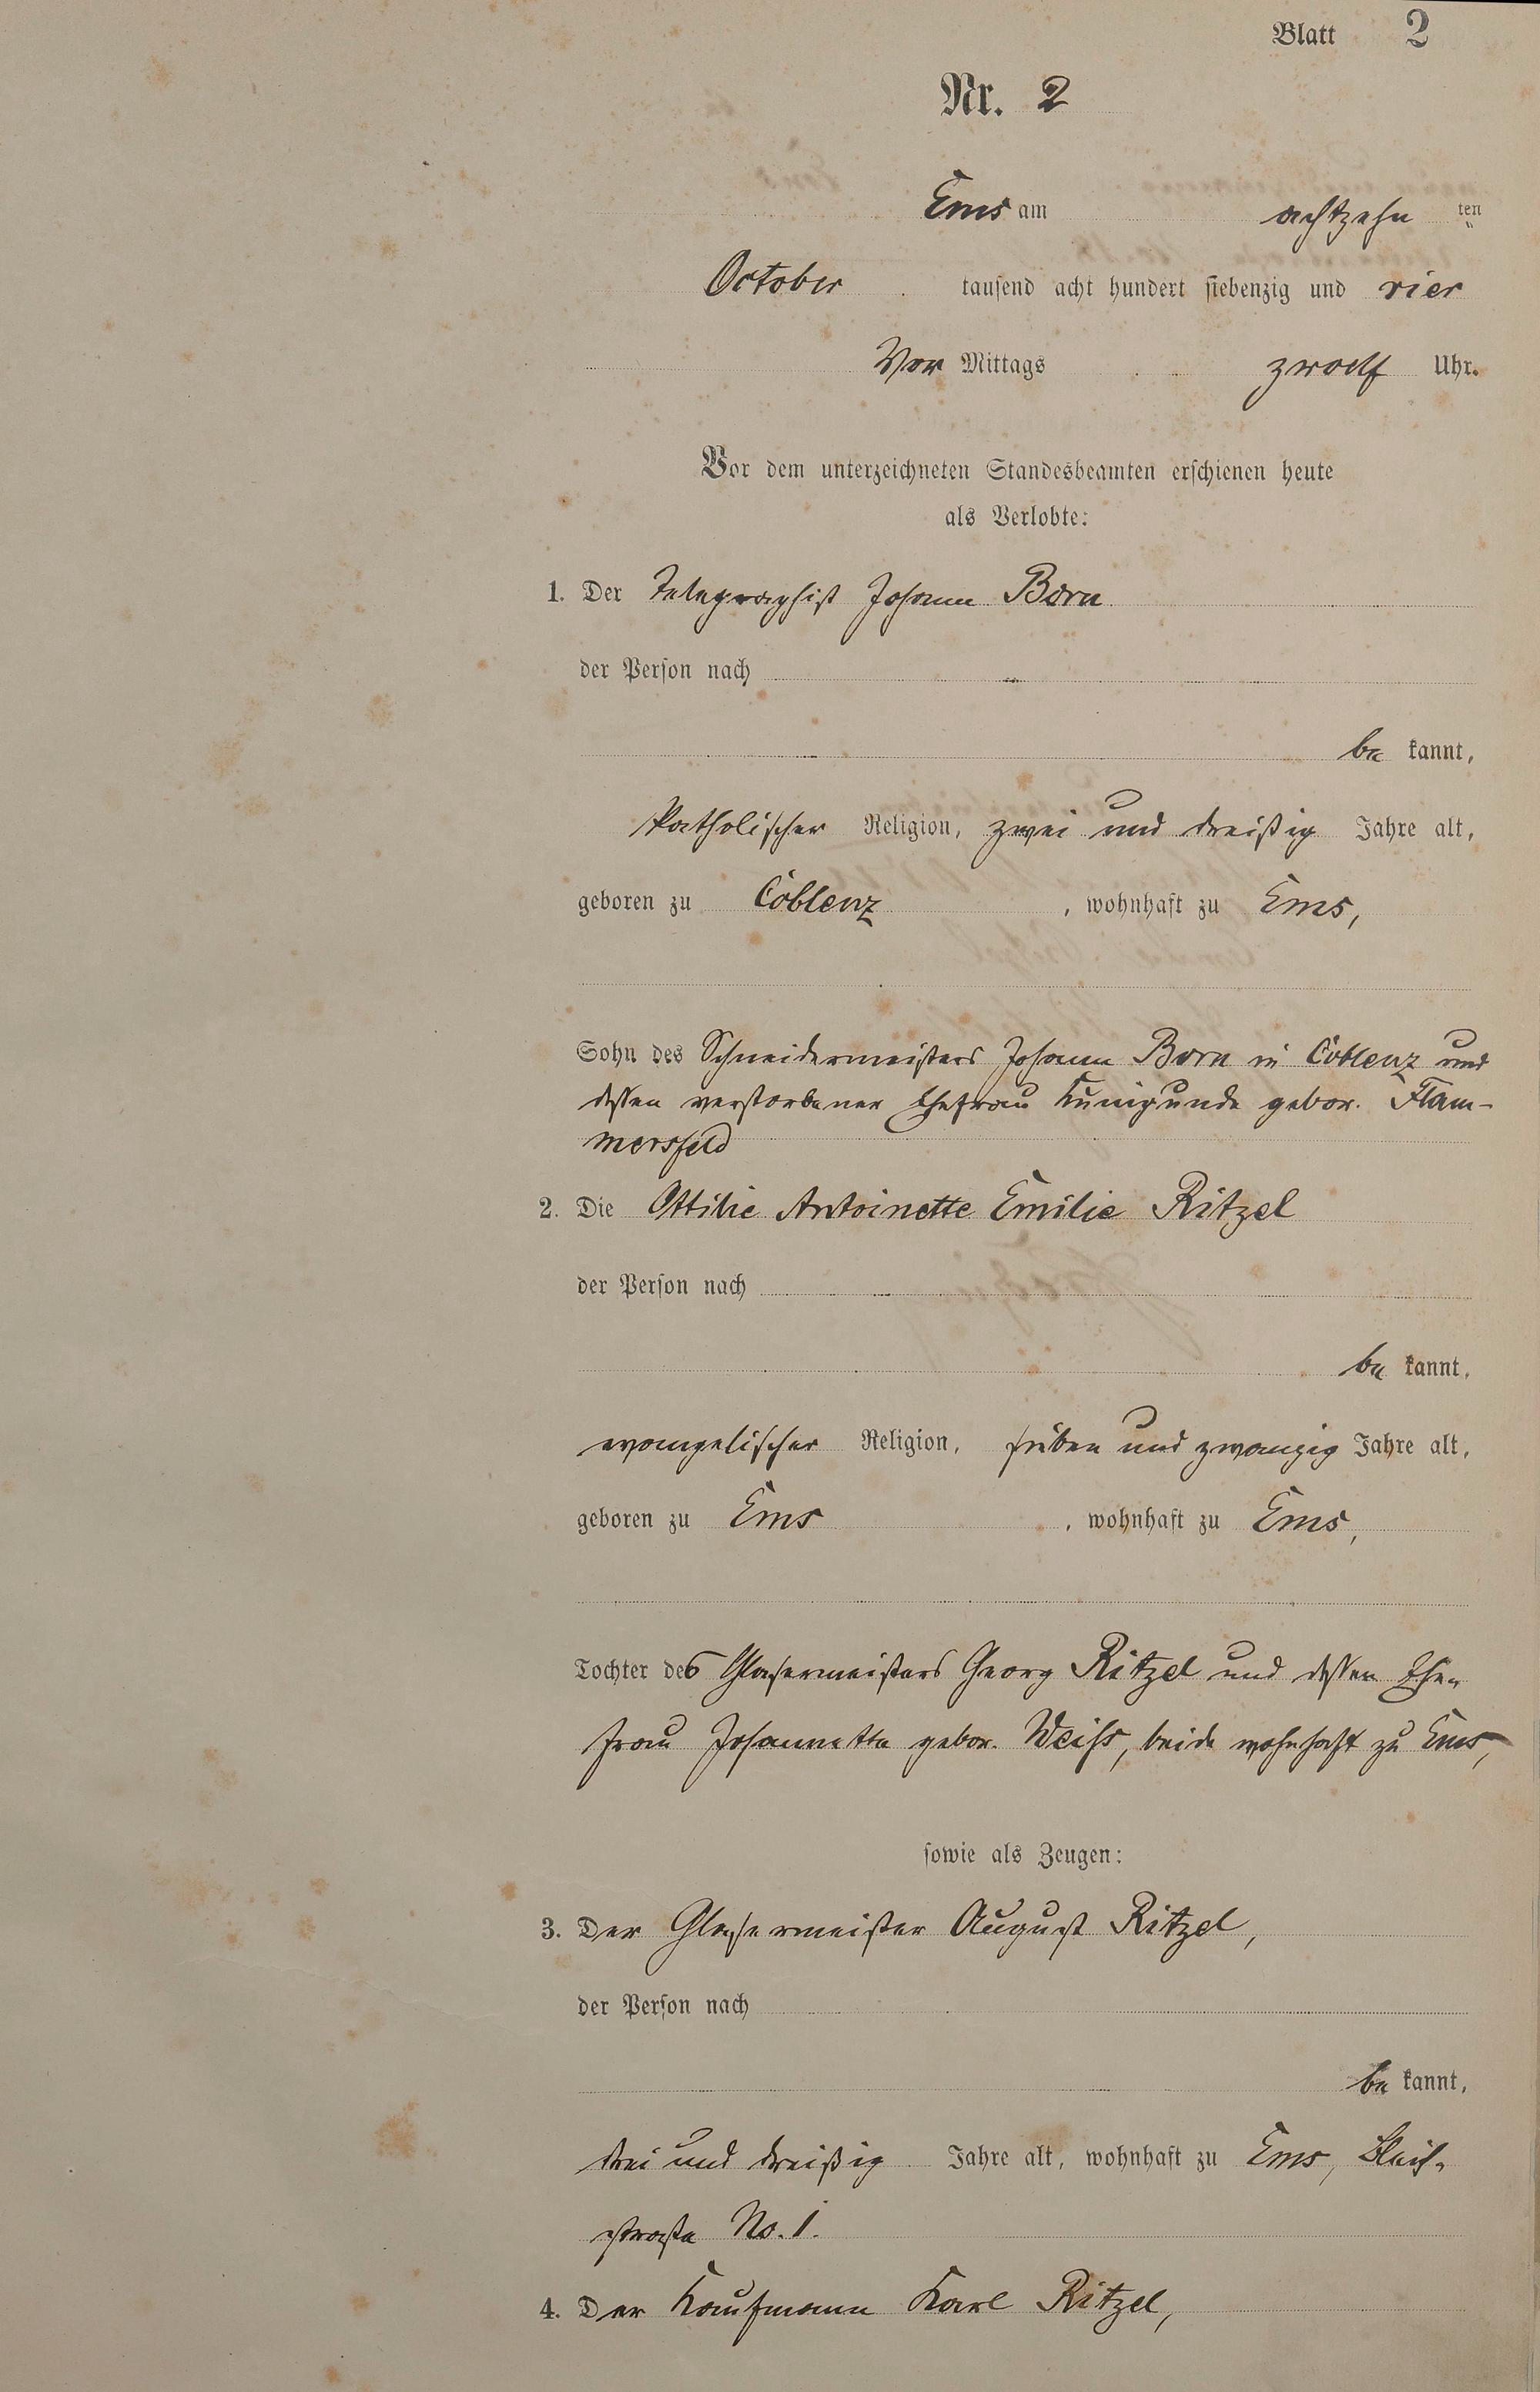 Blatt 2
Nr. 2
Ems am achtzehn ten
October tausend acht hundert siebenzig und vier
Vor Mittags zwoelf Uhr.
Vor dem unterzeichneten Standesbeamten erschienen heute
als Verlobte:
1. Der Telegraphist Johann Born
der Person nach
be kannt,
katholischer Religion, zwei und dreißig Jahre alt,
geboren zu Coblenz , wohnhaft zu Ems,
Sohn des Schneidermeisters Johann Born in Coblenz und
dessen verstorbener Ehefrau Kunigunde gebor. Flam-
mersfeld
2. Die Ottilie Antoinette Emilie Ritzel
der Person nach
be kannt,
evangelischer Religion, sieben und zwanzig Jahre alt,
geboren zu Ems , wohnhaft zu Ems,
Tochter des Glasermeisters Georg Ritzel und dessen Ehe-
frau Johannette gebor. Weiß, beide wohnhaft zu Ems,
sowie als Zeugen:
3. Der Glasermeister August Ritzel,
der Person nach
be kannt,
drei und dreißig Jahre alt, wohnhaft zu Ems, Bleich-
straße No. 1.
4. Der Kaufmann Karl Ritzel,